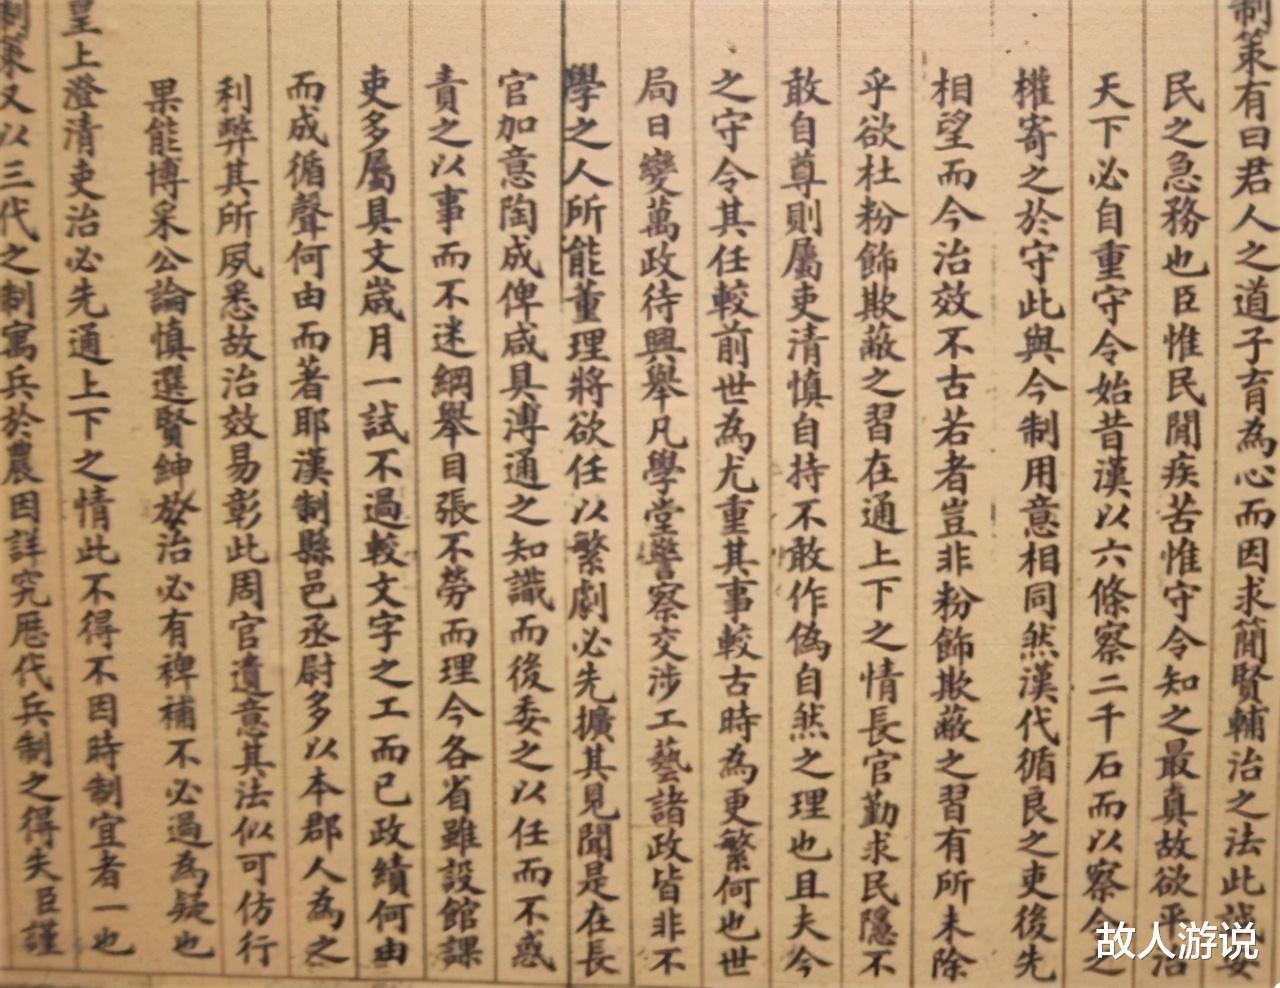 制策有曰君人之道子育為心而因求簡賢輔治之法此誠安
民之急務也臣惟民間疾苦惟守令知之最真故欲平治
天下必自重守令始昔漢以六條察二千石而以察令之
權寄之於守此與今制用意相同然漢代循良之吏後先
相望而今治效不古若者豈非粉飾欺蔽之習有所未除
乎欲杜粉飾欺蔽之習在通上下之情長官勤求民隱不
敢自尊則屬吏清慎自持不敢作偽自然之理也且夫今
之守令其任較前世為尤重其事較古時為更繁何也世
局日變萬政待興舉凡學堂警察交涉工藝諸政皆非不
學之人所能董理將欲任以繁劇必先擴其見聞是在長
官加意陶成俾咸具溥通之知識而後委之以任而不惑
責之以事而不迷綱舉目張不勞而理今各省雖設館課
吏多屬具文歲月一試不過較文字之工而已政績何由
而成循聲何由而著耶漢制縣邑丞尉多以本郡人為之
利弊其所夙悉故治效易彰此周官遺意其法似可仿行
果能博采公論慎選賢紳於治必有裨補不必過為疑也
皇上澄清吏治必先通上下之情此不得不因時制宜者一也
制策又以三代之制寓兵於農因詳究歷代兵制之得失臣謹
故人游说